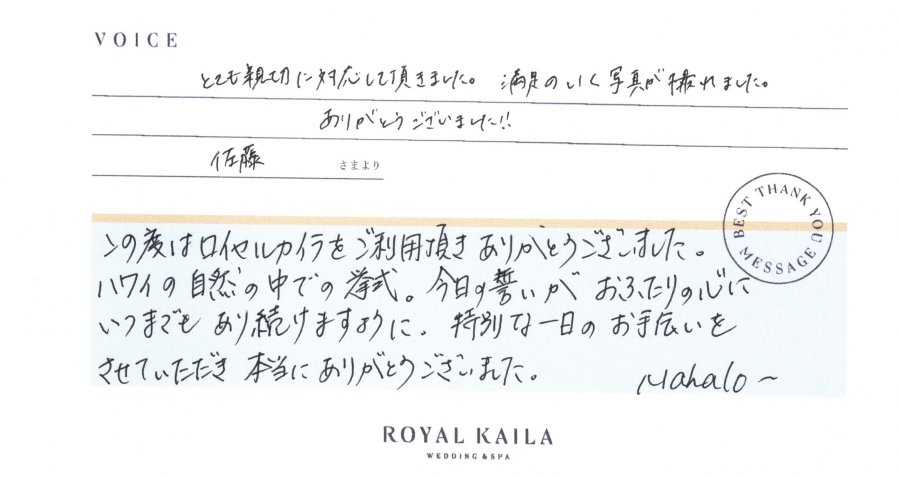 VOICE
とても親切に対応して頂きました。 満足のいく写真が撮れました。
ありがとうございました!!
佐藤 さまより
BEST THANK YOU MESSAGE
この度はロイヤルカイラをご利用頂きありがとうございました。
ハワイの自然の中での挙式。今日の誓いが おふたりの心に
いつまでも あり続けますように。特別な一日の お手伝いを
させていただき 本当にありがとうございました。 Mahalo~
ROYAL KAILA
WEDDING & SPA